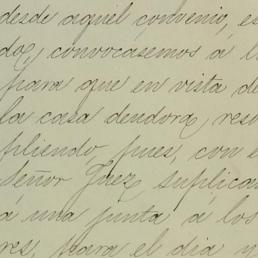 desde aquel convenio, es
do, convocasemos á l
para que en vista de
la casa deudora reso
pliendo, pues, con e
Señor Juez suplica
á una junta á los
res, para el dia y